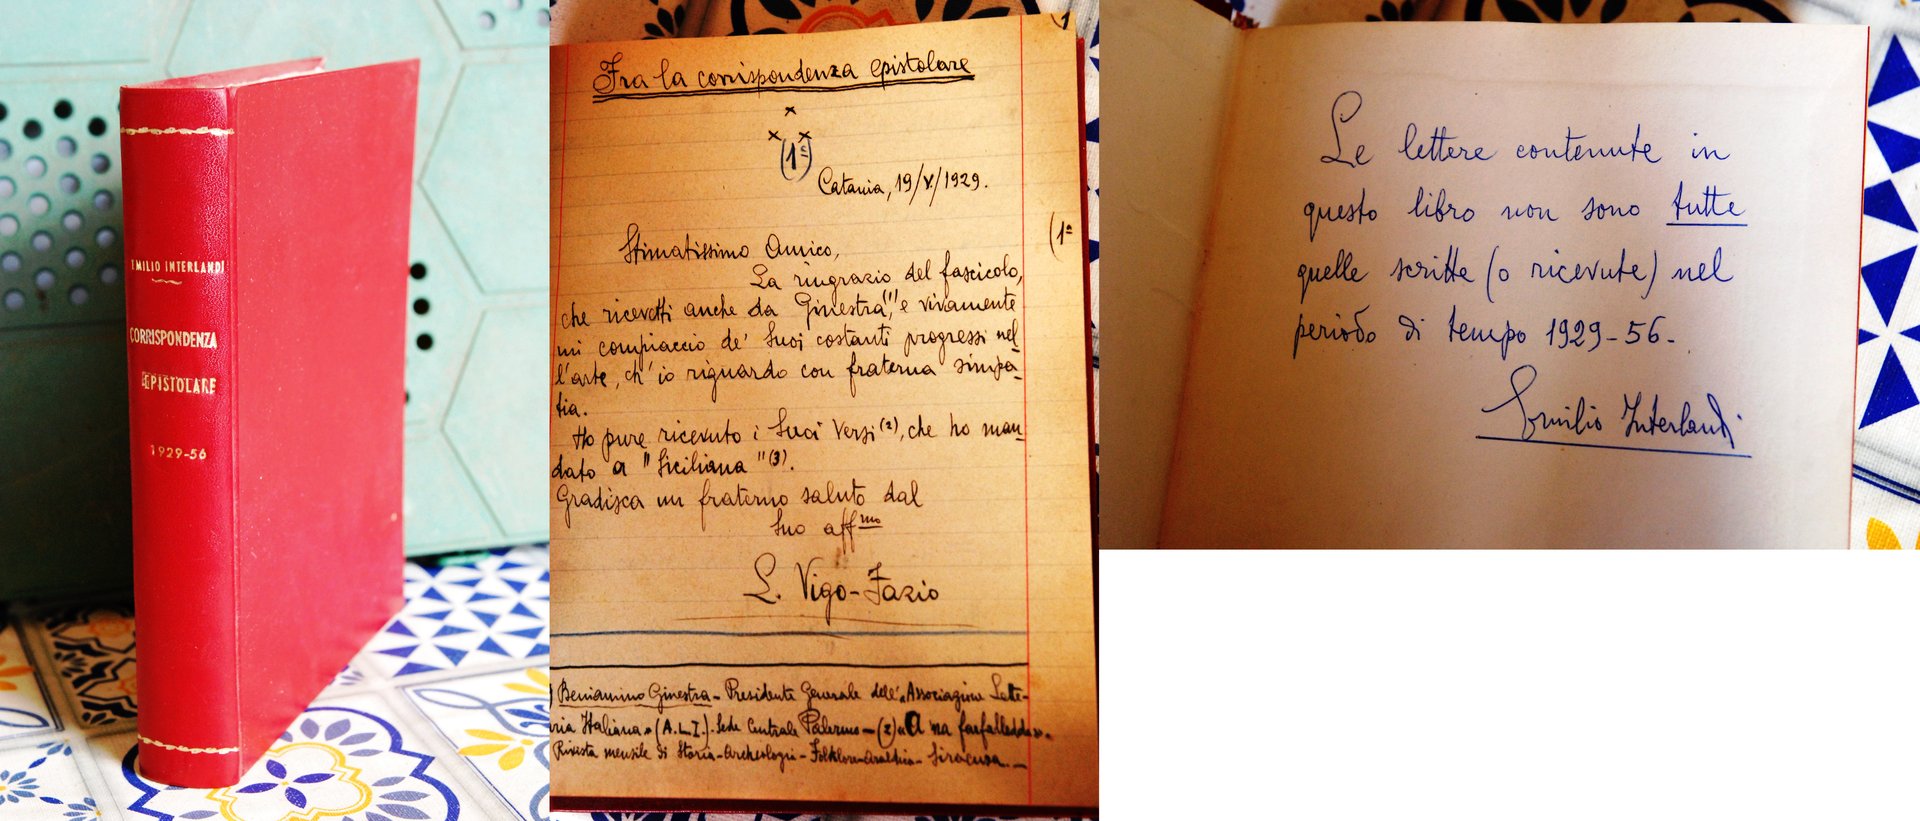 EMILIO INTERLANDI
CORRISPONDENZA
EPISTOLARE
1929-56
Fra la corrispondenza epistolare
(1ª)
Catania, 19/V/1929.
(1ª
Stimatissimo Amico,
La ringrazio del fascicolo,
che ricevetti anche da Ginestra(1), e vivamente
mi compiaccio de' Suoi costanti progressi nel-
l'arte, ch'io riguardo con fraterna simpa-
tia.
Ho pure ricevuto i Suoi Versi(2), che ho man-
dato a "Siciliana"(3).
Gradisca un fraterno saluto dal
Suo affmo
L. Vigo-Fazio
) Beniamino Ginestra - Presidente Generale dell'«Associazione Lette-
ria Italiana» (A.L.I.). Sede Centrale Palermo - (2) «A na farfalledda».
Rivista mensile di Storia-Archeologia-Folklore-Araldica - Siracusa.
Le lettere contenute in
questo libro non sono tutte
quelle scritte (o ricevute) nel
periodo di tempo 1929-56-
Emilio Interlandi